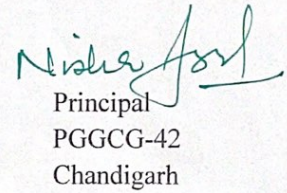 Principal
PGGCG-42
Chandigarh